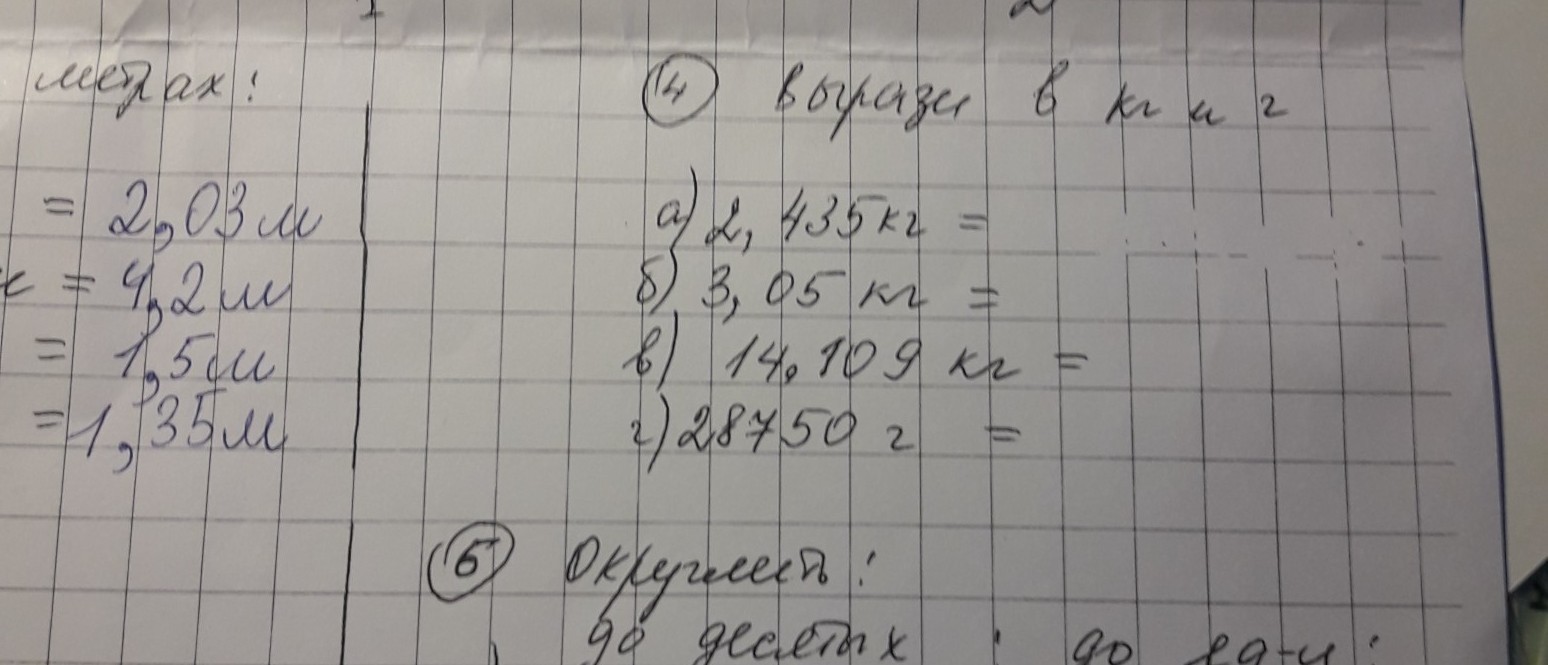 метрах:
= 2,03 м
= 4,2 м
= 1,5 м
= 1,35 м
14 вырази в кг и г
а) 2,435 кг =
б) 3,05 кг =
в) 14,109 кг =
г) 28750 г =
Округлить:
до десятых ; до ед-ц: